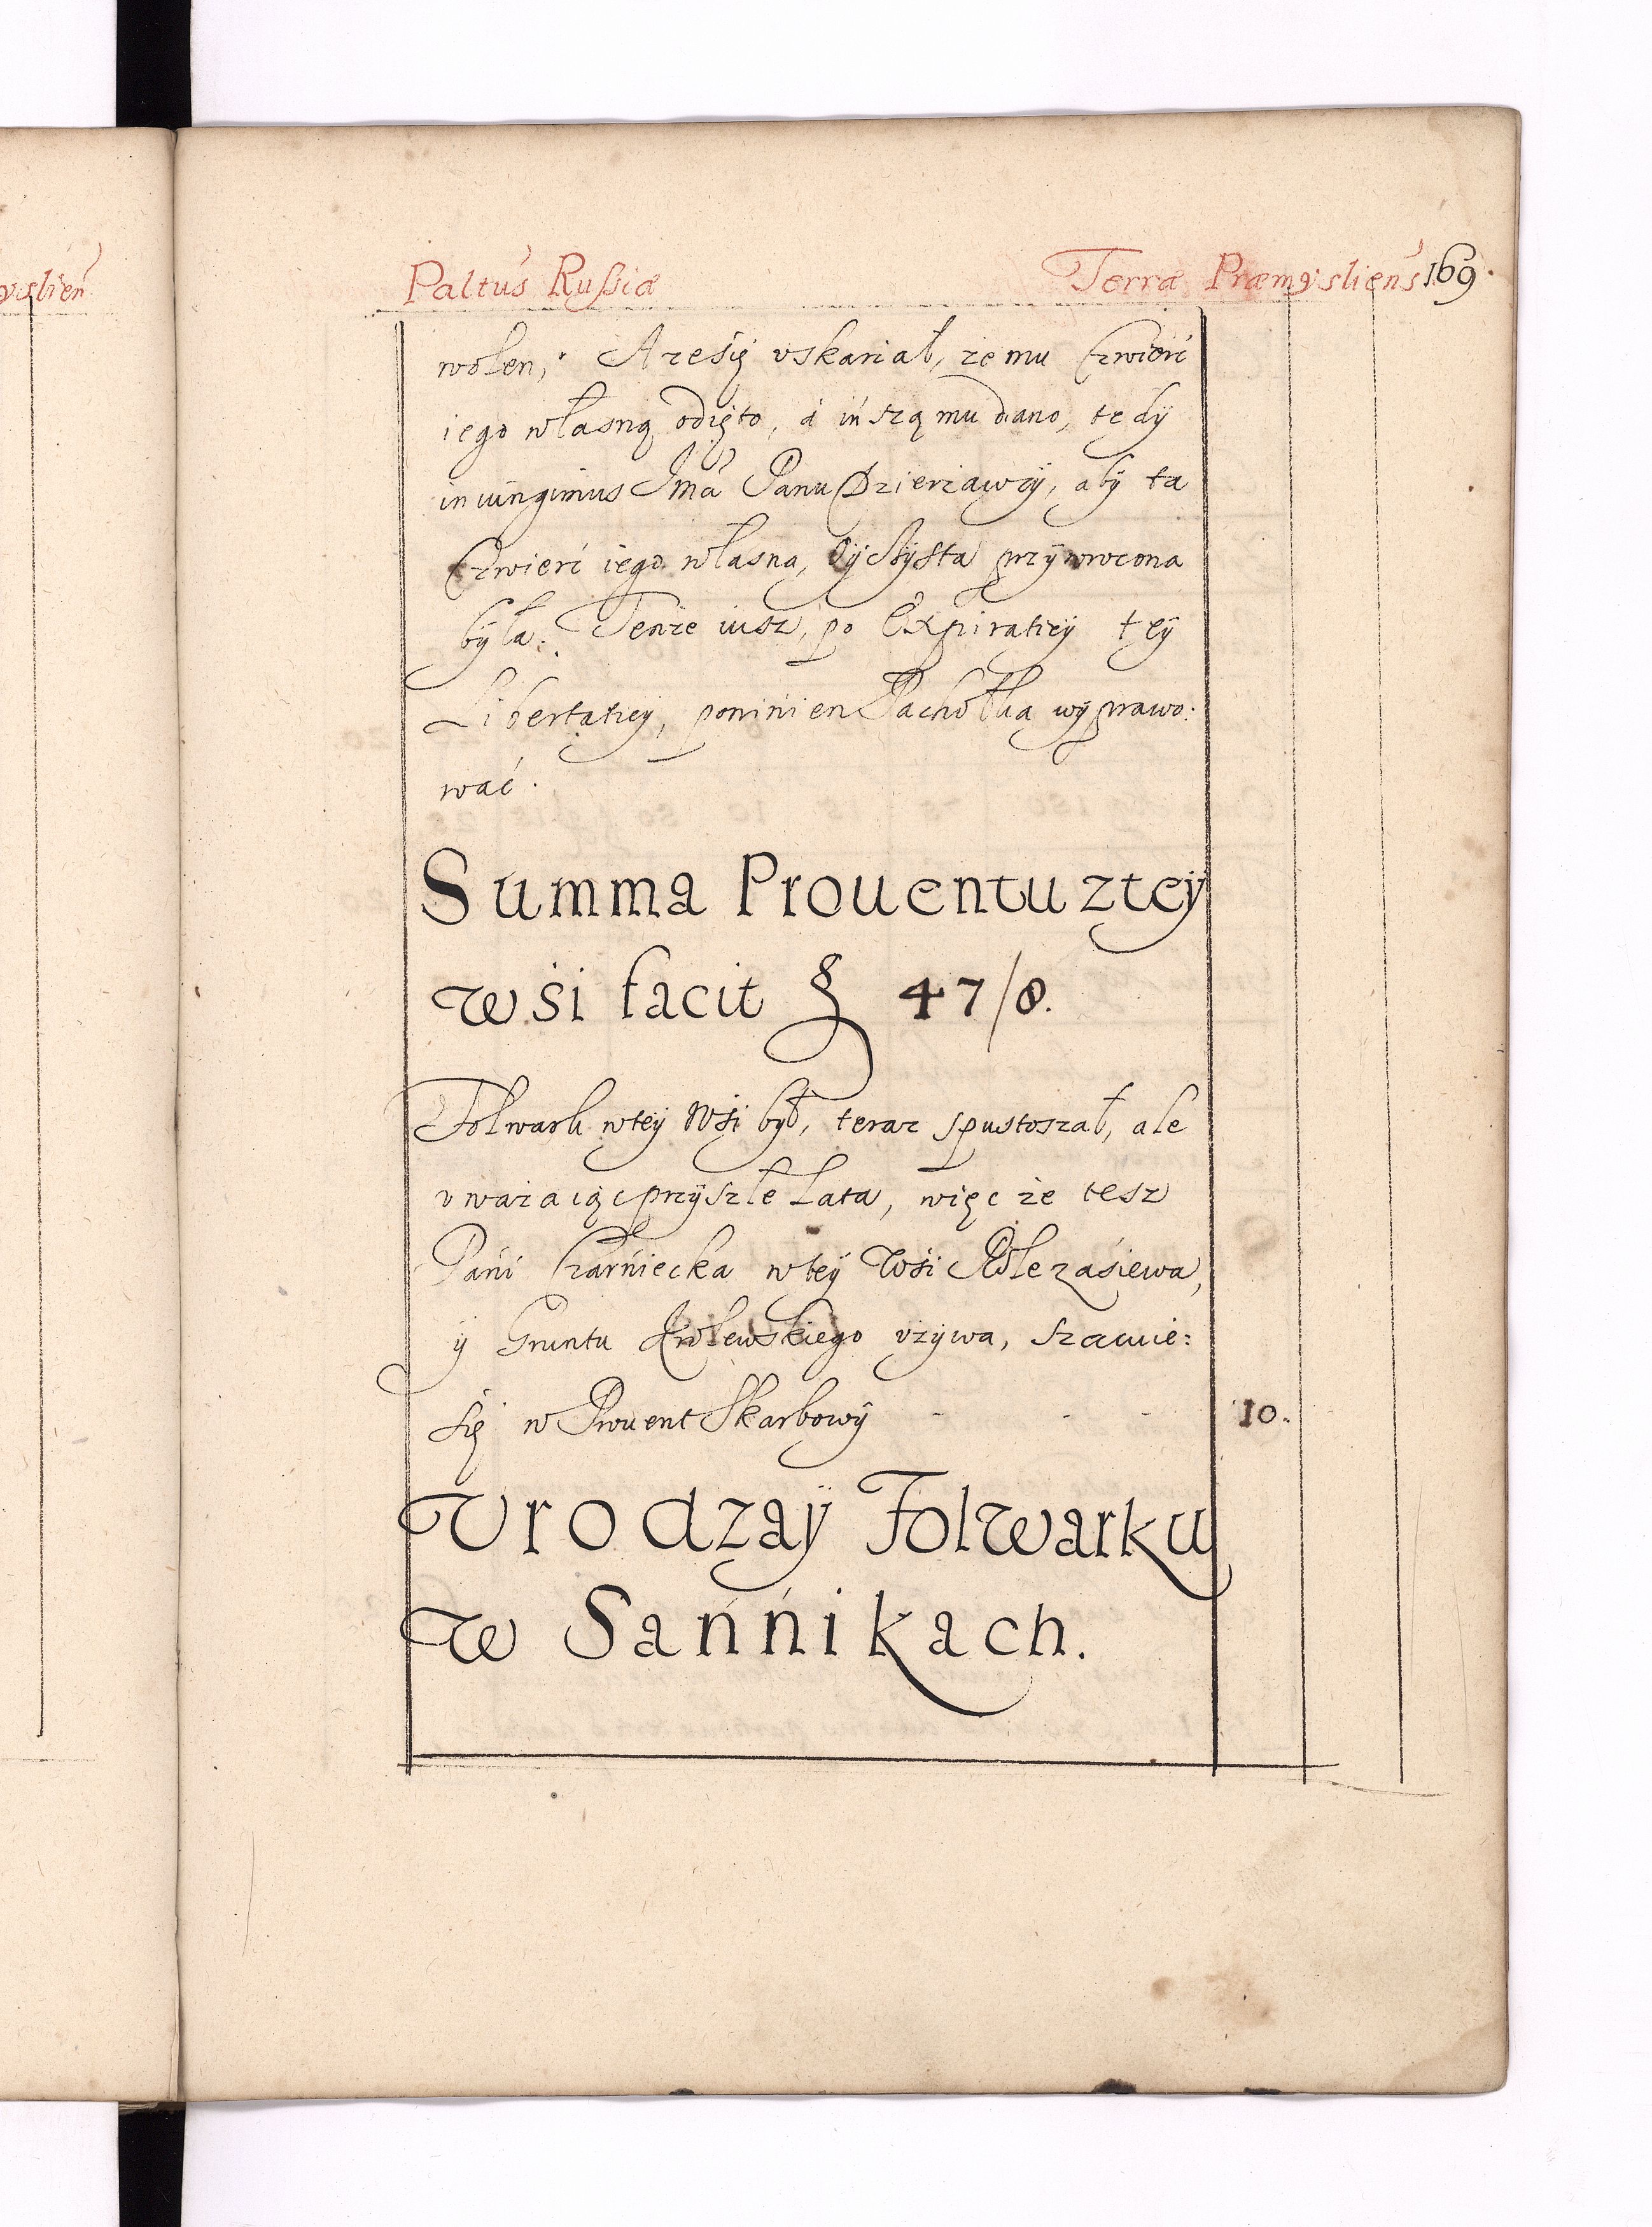 yslien̄
Paltus Russiæ Terræ Præmysliens 169.
wolen, A że się vskarżał, że mu Czwierć
iego własną odięto, á ińszą mu dano, tedÿ
iniungimus Jmā Panu Dzierżawcÿ, abÿ ta
Czwierć iego własna, przÿwrocona
bÿła. Tenże iusz, po Expiratieÿ teÿ
Libertatieÿ, powinien Pachołka wÿprawo:
wać.
Summa Prouentu z teÿ
wśi facit 47/8.
Folwark w teÿ Wśi bÿł, teraz spustoszał, ale
vważaiąc przÿszłe Lata, więc że tesz
Pańi Czarńiecka w teÿ Wśi Role zaśiewa,
ÿ Gruntu Krolewskiego vżÿwa, szacuie:
się w Prouent Skarbowÿ - - - 10.
Vrodzaÿ Folwarku
w Sańńikach.